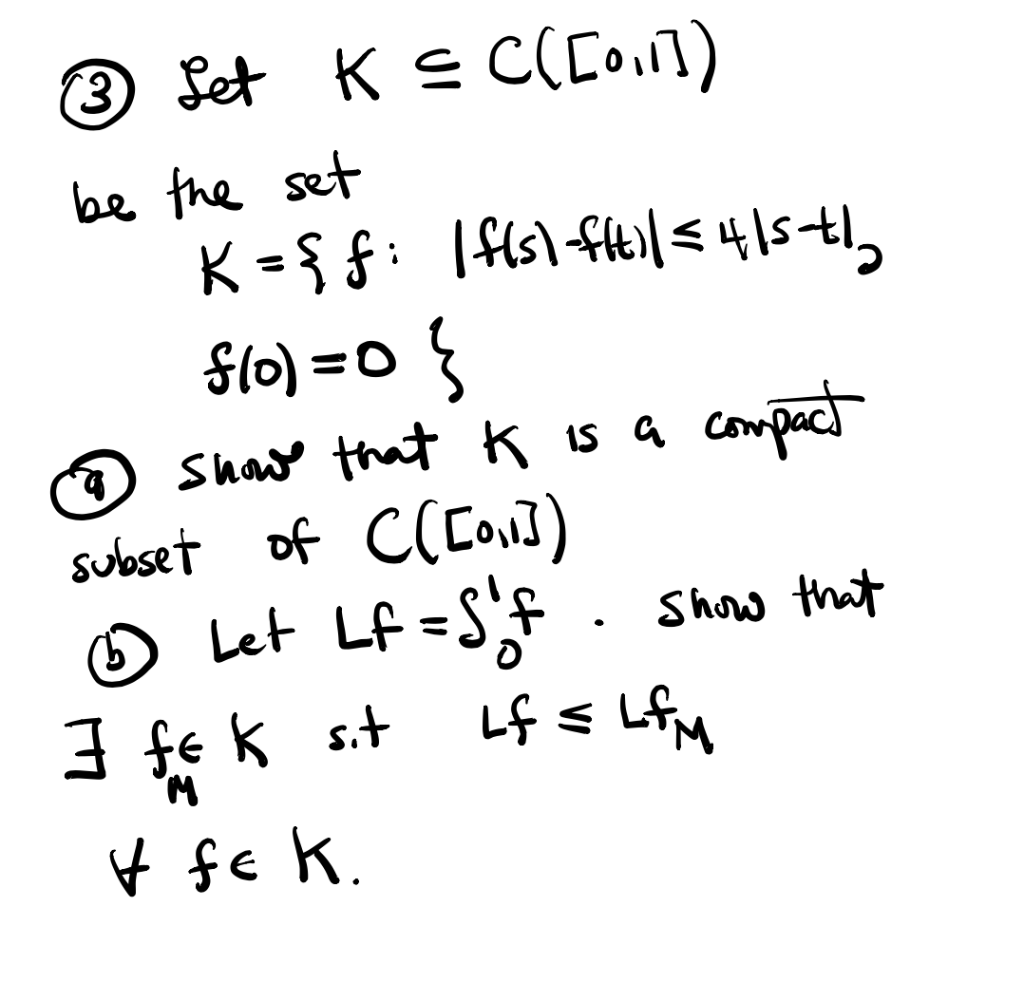 ③ Let K ⊆ C([0,1])
be the set
K = { f : |f(s)-f(t)| ≤ 4|s-t|,
f(0) = 0 }
ⓐ show that K is a compact
subset of C([0,1])
ⓑ Let Lf = ∫₀¹ f . show that
∃ f_M ∈ K s.t Lf ≤ Lf_M
∀ f ∈ K.